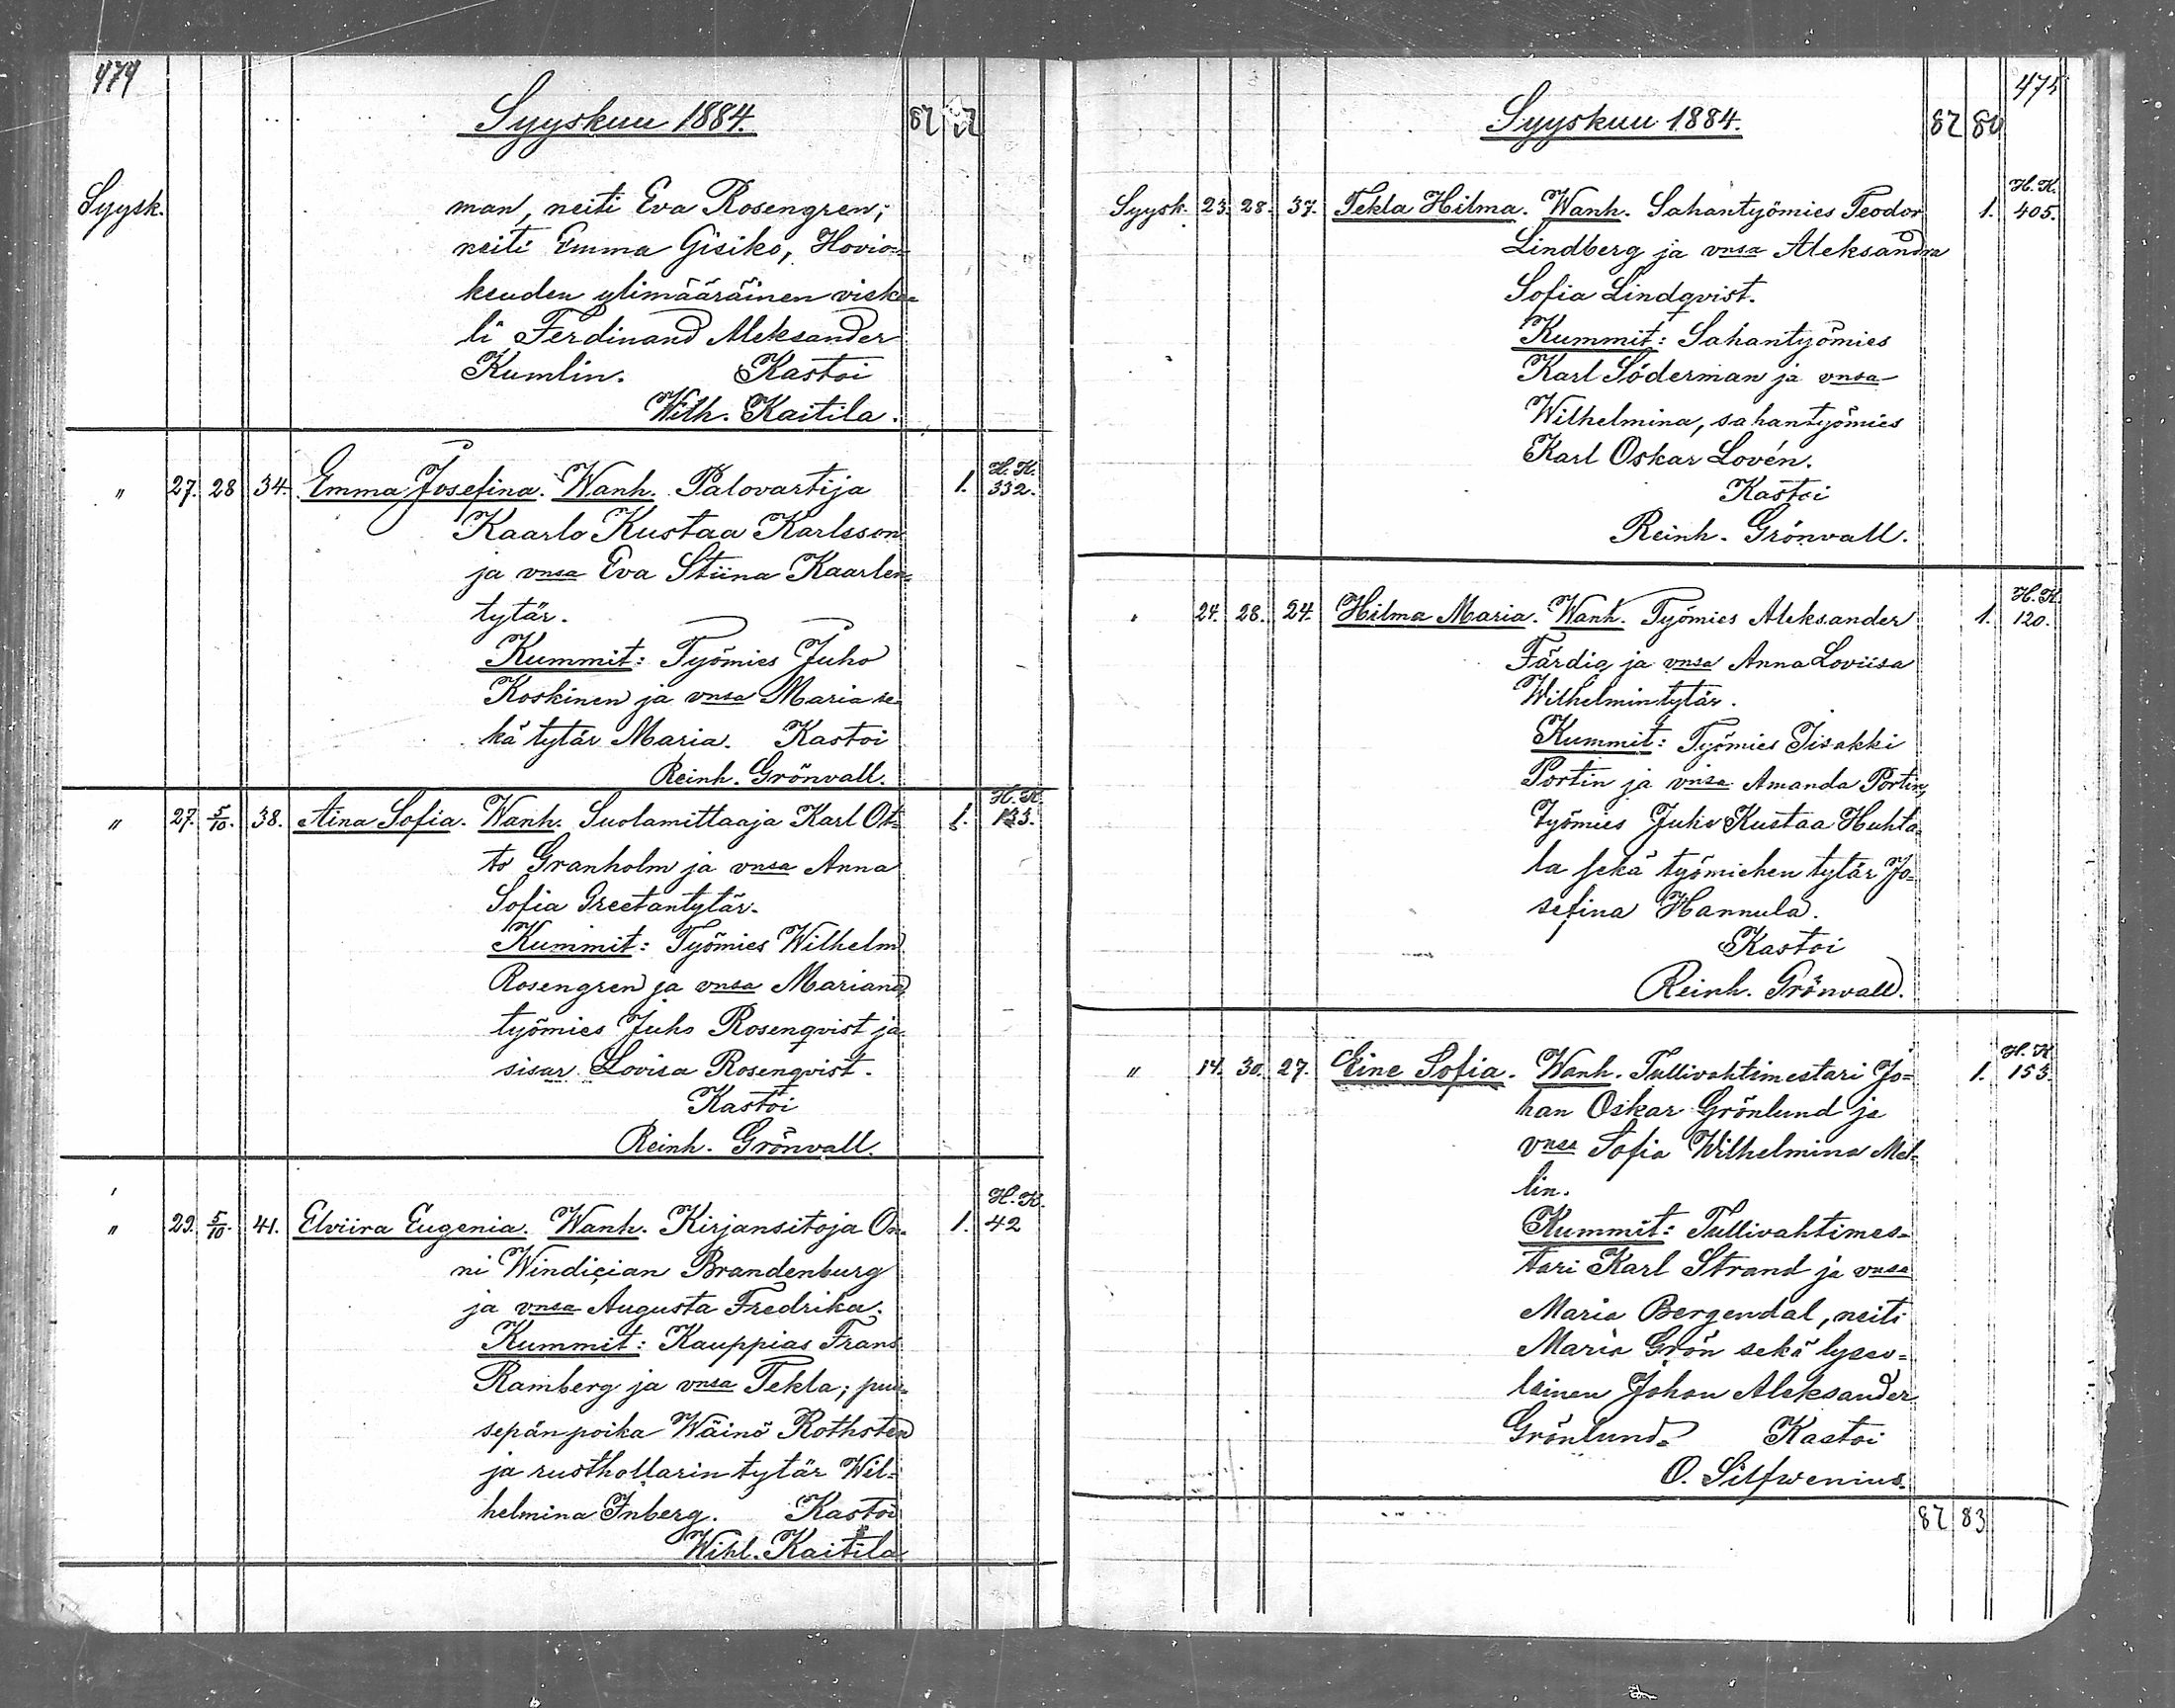 474
Syyskuu 1884.
87
Syysk.
man, neiti Eva Rosengren;
neiti Emma Gisiko, Hovioi=
keuden ylimääräinen viska=
li Ferdinand Aleksander
Kumlin. Kastoi
Wilh. Kaitila.
" 27. 28 34. Emma Josefina. Wanh. Palovartija 1. H. K. 332.
Kaarlo Kustaa Karlsson
ja vnsa Eva Stiina Kaarlen=
tytär.
Kummit: Työmies Juho
Koskinen ja vnsa Maria se=
kä tytär Maria. Kastoi
Reinh. Grönvall.
" 27. 5/10. 38. Aina Sofia. Wanh. Suolamittaaja Karl Ot= 1. H. K. 133.
to Granholm ja vnsa Anna
Sofia Greetantytär.
Kummit: Työmies Wilhelm
Rosengren ja vnsa Mariana,
työmies Juho Rosenqvist ja
sisar Lovisa Rosenqvist.
Kastoi
Reinh. Grönvall.
" 29. 5/10. 41. Elviira Eugenia. Wanh. Kirjansitoja On= 1. H. K. 42
ni Windician Brandenburg
ja vnsa Augusta Fredrika.
Kummit: Kauppias Frans
Ramberg ja vnsa Tekla; puu=
sepänpoika Wäinö Rothsten
ja rusthollarin tytär Wil=
helmina Inberg. Kastoi
Wihl. Kaitila
475
Syyskuu 1884.
87 80
Syysk. 23. 28. 37. Tekla Hilma. Wanh. Sahantyömies Teodor 1. H. K. 405.
Lindberg ja vnsa Aleksandra
Sofia Lindqvist.
Kummit: Sahantyömies
Karl Söderman ja vnsa
Wilhelmina, sahantyömies
Karl Oskar Lovén.
Kastoi
Reinh. Grönvall.
" 24. 28. 24. Hilma Maria. Wanh. Työmies Aleksander 1. H. K. 120.
Färdig ja vnsa Anna Loviisa
Wilhelmintytär.
Kummit: Työmies Iisakki
Portin ja vnsa Amanda Portin,
Työmies Juho Kustaa Huhta=
la sekä työmiehen tytär Jo=
sefina Hannula.
Kastoi
Reinh. Grönvall.
" 14. 30. 27. Eine Sofia. Wanh. Tullivahtimestari Jo= 1. H. K. 153.
han Oskar Grönlund ja
vnsa Sofia Wilhelmina Mel=
lin.
Kummit: Tullivahtimes=
tari Karl Strand ja vnsa
Maria Bergendal, neiti
Maria Grön sekä lyseo=
lainen Johan Aleksander
Grönlund. Kastoi
O. Silfwenius.
87 83